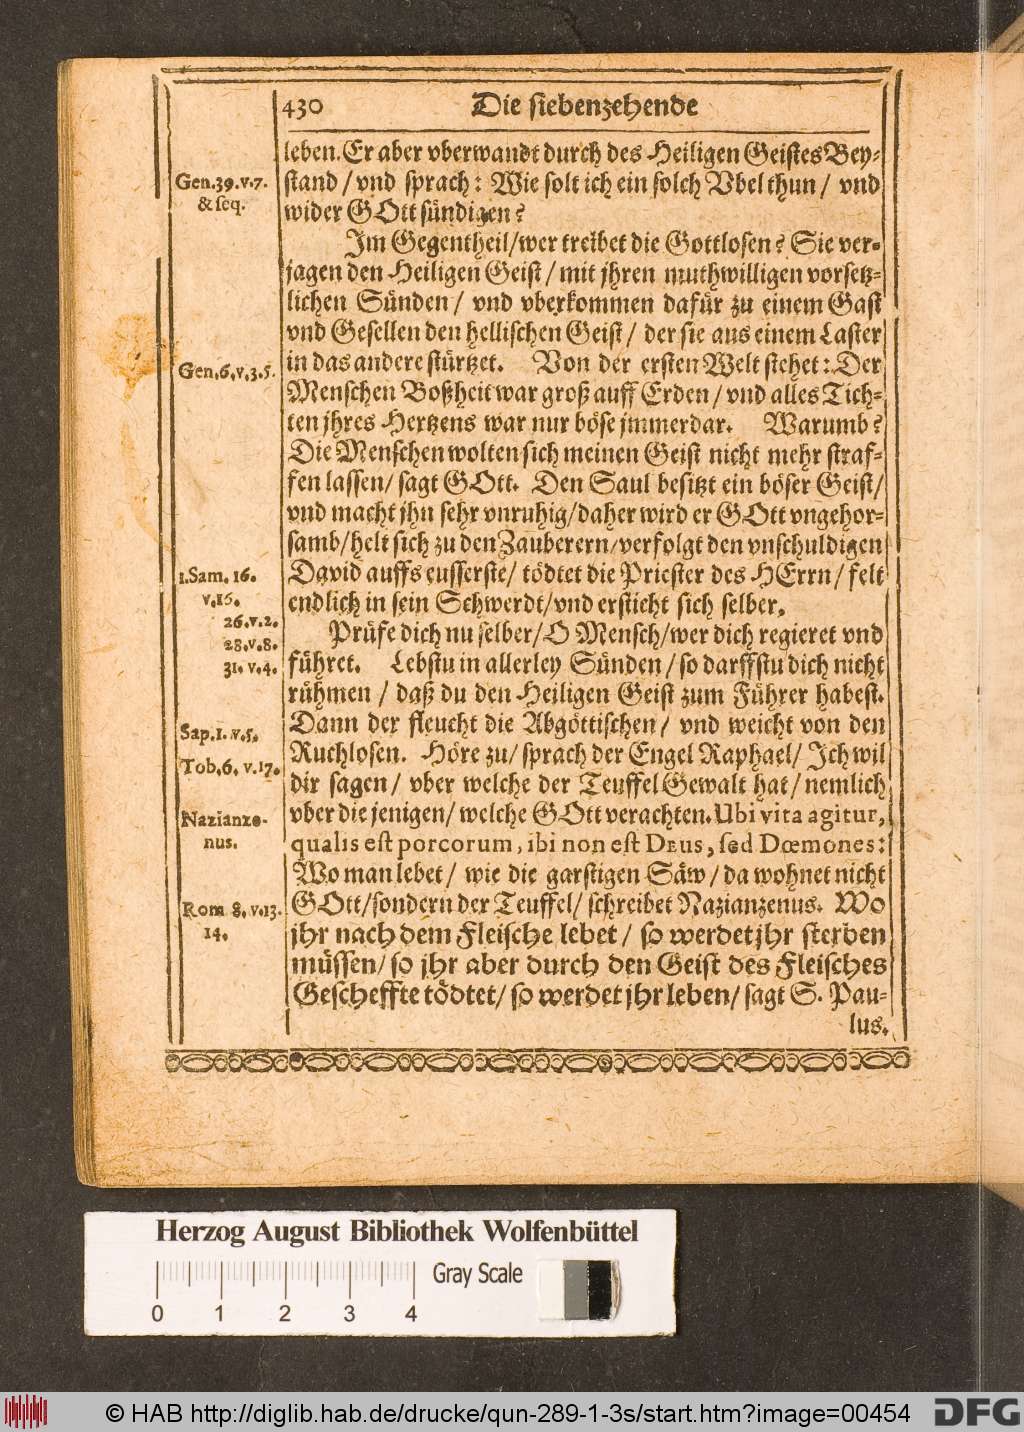 430 Die siebenzehende
leben. Er aber vberwandt durch des Heiligen Geistes Bey-
Gen.39.v.7.
& seq.
stand / vnd sprach: Wie solt ich ein solch Vbel thun / vnd
wider GOtt sündigen?
Im Gegentheil / wer treibet die Gottlosen? Sie ver-
jagen den Heiligen Geist / mit jhren muthwilligen vorsetz-
lichen Sünden / vnd vberkommen dafür zu einem Gast
vnd Gesellen den hellischen Geist / der sie aus einem Laster
Gen.6.v.3.5.
in das andere stürtzet. Von der ersten Welt stehet: Der
Menschen Boßheit war groß auff Erden / vnd alles Tich-
ten jhres Hertzens war nur böse jmmerdar. Warumb?
Die Menschen wolten sich meinen Geist nicht mehr straf-
fen lassen / sagt GOtt. Den Saul besitzt ein böser Geist /
vnd macht jhn sehr vnruhig / daher wird er GOtt vngehor-
samb / helt sich zu den Zauberern / verfolgt den vnschuldigen
1.Sam. 16.
v.15.
26.v.2.
28.v.8.
31. v.4.
David auffs eusserste / tödtet die Priester des HErrn / felt
endlich in sein Schwerdt / vnd ersticht sich selber.
Prüfe dich nu selber / O Mensch / wer dich regieret vnd
führet. Lebstu in allerley Sünden / so darffstu dich nicht
rühmen / daß du den Heiligen Geist zum Führer habest.
Sap.1.v.5.
Dann der fleucht die Abgöttischen / vnd weicht von den
Tob.6. v.17.
Ruchlosen. Höre zu / sprach der Engel Raphael / Ich wil
dir sagen / vber welche der Teuffel Gewalt hat / nemlich
Nazianze-
nus.
vber die jenigen / welche GOtt verachten. Ubi vita agitur,
qualis est porcorum, ibi non est Deus, sed Dœmones:
Wo man lebet / wie die garstigen Säw / da wohnet nicht
Rom 8. v.13.
14.
GOtt / sondern der Teuffel / schreibet Nazianzenus. Wo
jhr nach dem Fleische lebet / so werdet jhr sterben
müssen / so jhr aber durch den Geist des Fleisches
Gescheffte tödtet / so werdet jhr leben / sagt S. Pau-
lus.
Herzog August Bibliothek Wolfenbüttel
Gray Scale
0 1 2 3 4
© HAB http://diglib.hab.de/drucke/qun-289-1-3s/start.htm?image=00454
DFG